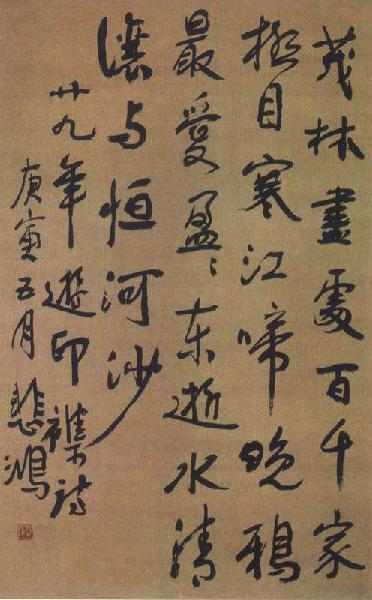 茂林盡處百千家
極目寒江啼晚鴉
最愛盈〻東逝水清
讓与恒河沙
廿九年遊印襍詩
庚寅五月 悲鴻